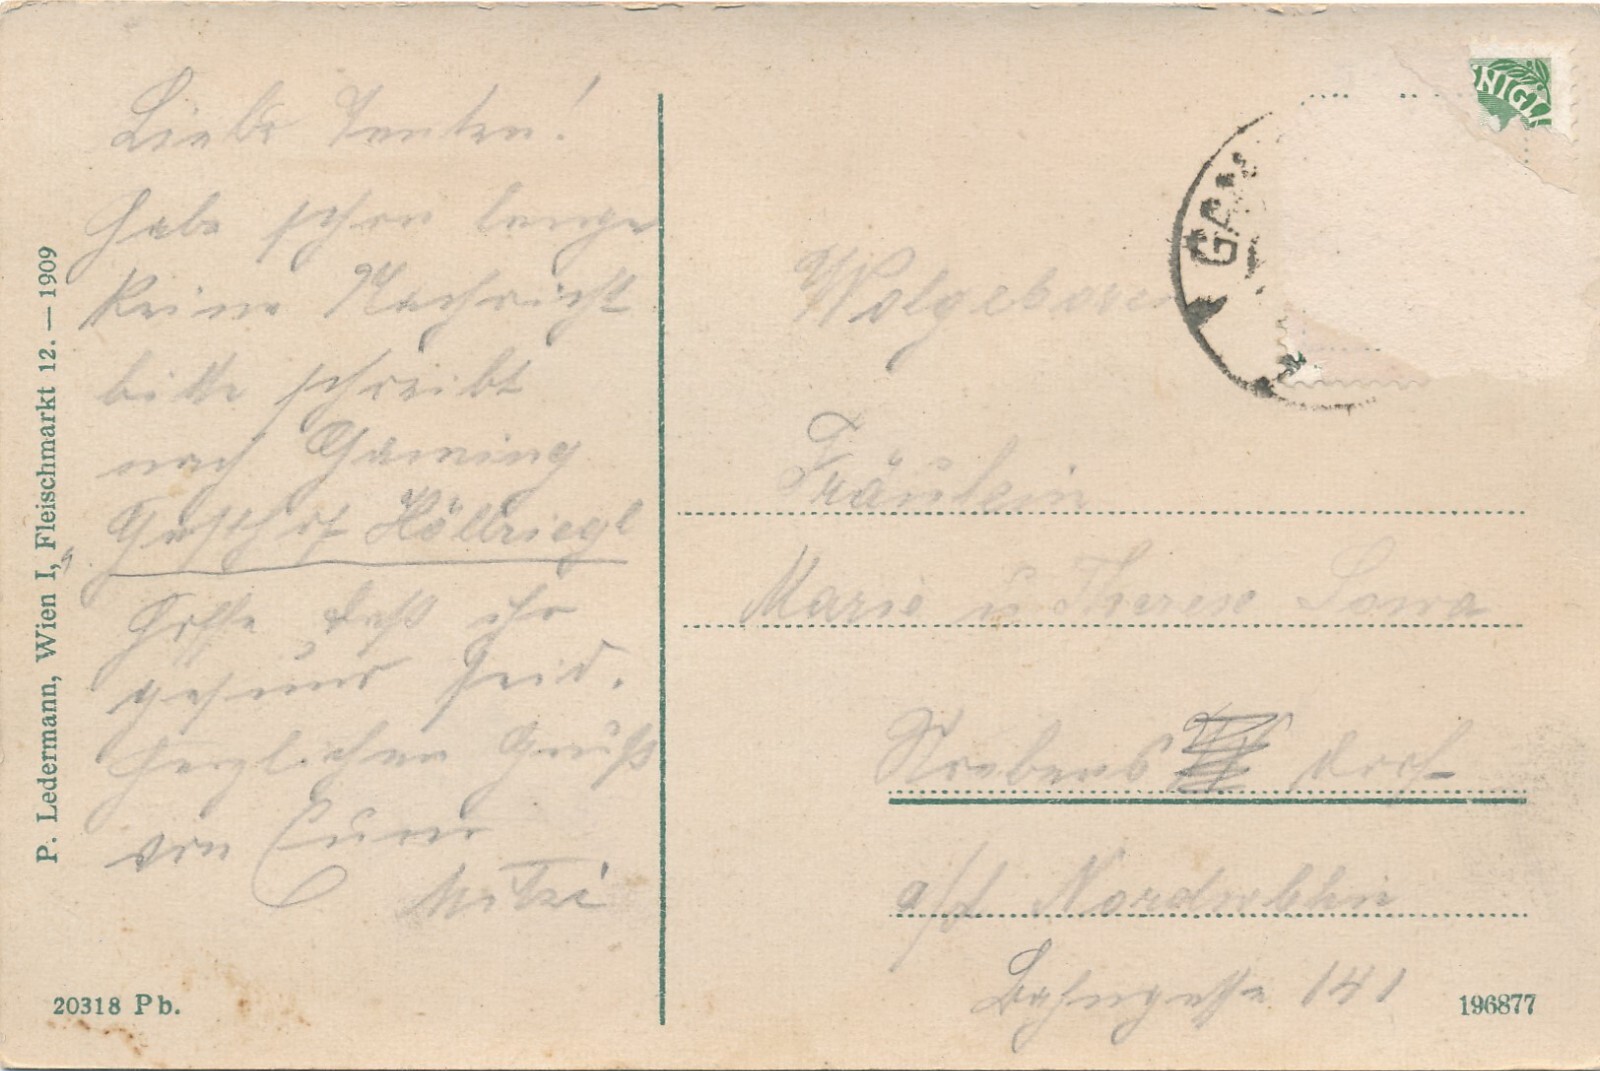 Liebe Tanten!
habe schon lange
keine Nachricht
bitte schreibt
nach Gaming
Gasthof Höllriegl
hoffe daß ihr
gesund seid.
herzlichen Gruß
von Eurer
Mitzi
P. Ledermann, Wien I, Fleischmarkt 12. — 1909
20318 Pb.
NIGL
GAM
Wolgeboren
Fräulein
Marie u Therese Sowa
Strebersdorf
a/d Nordwbhn
Bahngasse 141
196877